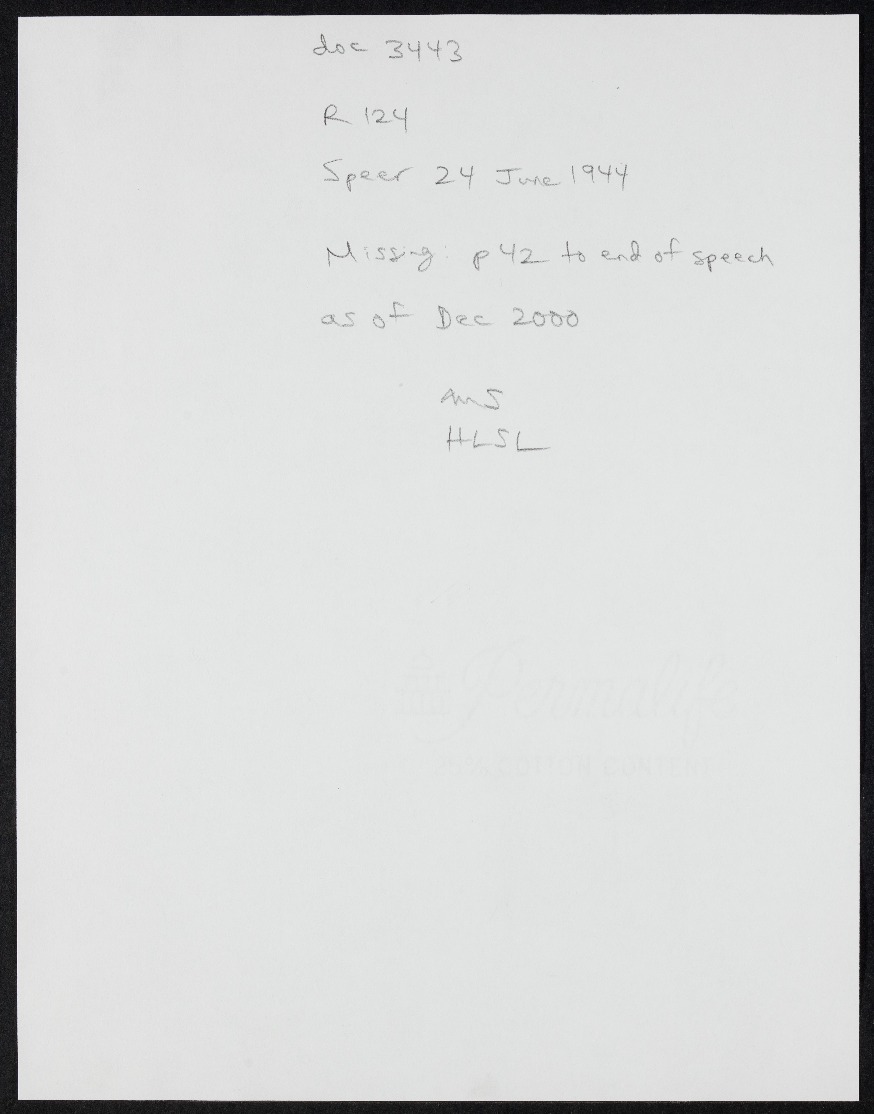 doc 3443
R 124
Speer 24 June 1944
Missing: p 42 to end of speech
as of Dec 2000
AMS
HLSL
Permalife
COTTON CONTENT